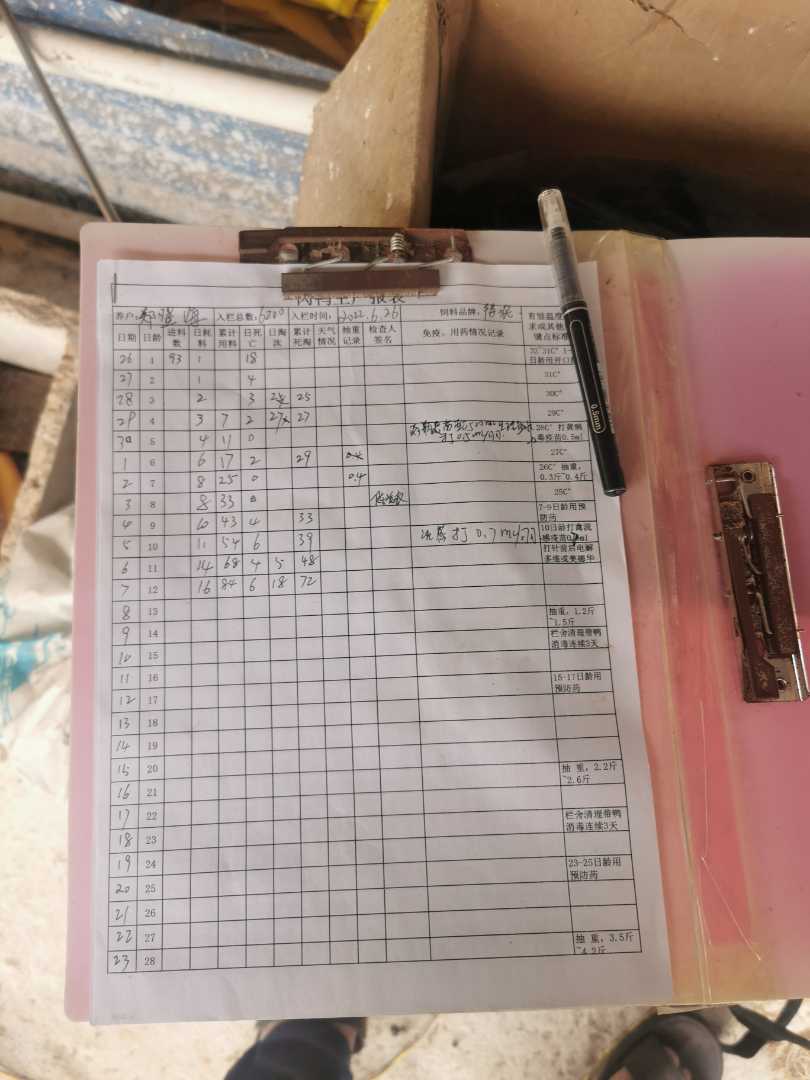 肉鸭生产报表
养户: 入栏总数:6200 入栏时间:2022.6.26 饲料品牌: 育雏温度 求或其他 键点标准
日期 日龄 进料数 日耗料 累计用料 日死亡 日淘汰 累计死淘 天气情况 抽重记录 检查人签名 免疫、用药情况记录
26 1 93 1 18 日龄用开口
27 2 1 4 31C°
28 3 2 3 25 30C°
29 4 3 7 2 27 27 29C°
30 5 4 11 0 28C° 打黄病毒疫苗0.5ml
1 6 6 17 2 29 0.4 27C°
2 7 8 25 0 0.4 26C° 抽重, 0.3斤~0.4斤
3 8 8 33 0 25C°
4 9 10 43 4 33 7-9日龄用预防药
5 10 11 54 6 39 打 0.7ml/羽 10日龄打禽流感疫苗
6 11 14 68 4 5 48 打针前后电解多维或奥德华
7 12 16 84 6 18 72
8 13 抽重, 1.2斤~1.5斤
9 14 栏舍清理带鸭消毒连续3天
10 15
11 16 15-17日龄用预防药
12 17
13 18
14 19
15 20 抽 重, 2.2斤~2.6斤
16 21
17 22 栏舍清理带鸭消毒连续3天
18 23
19 24 23-25日龄用预防药
20 25
21 26
22 27 抽 重, 3.5斤~4.2斤
23 28
0.5mm